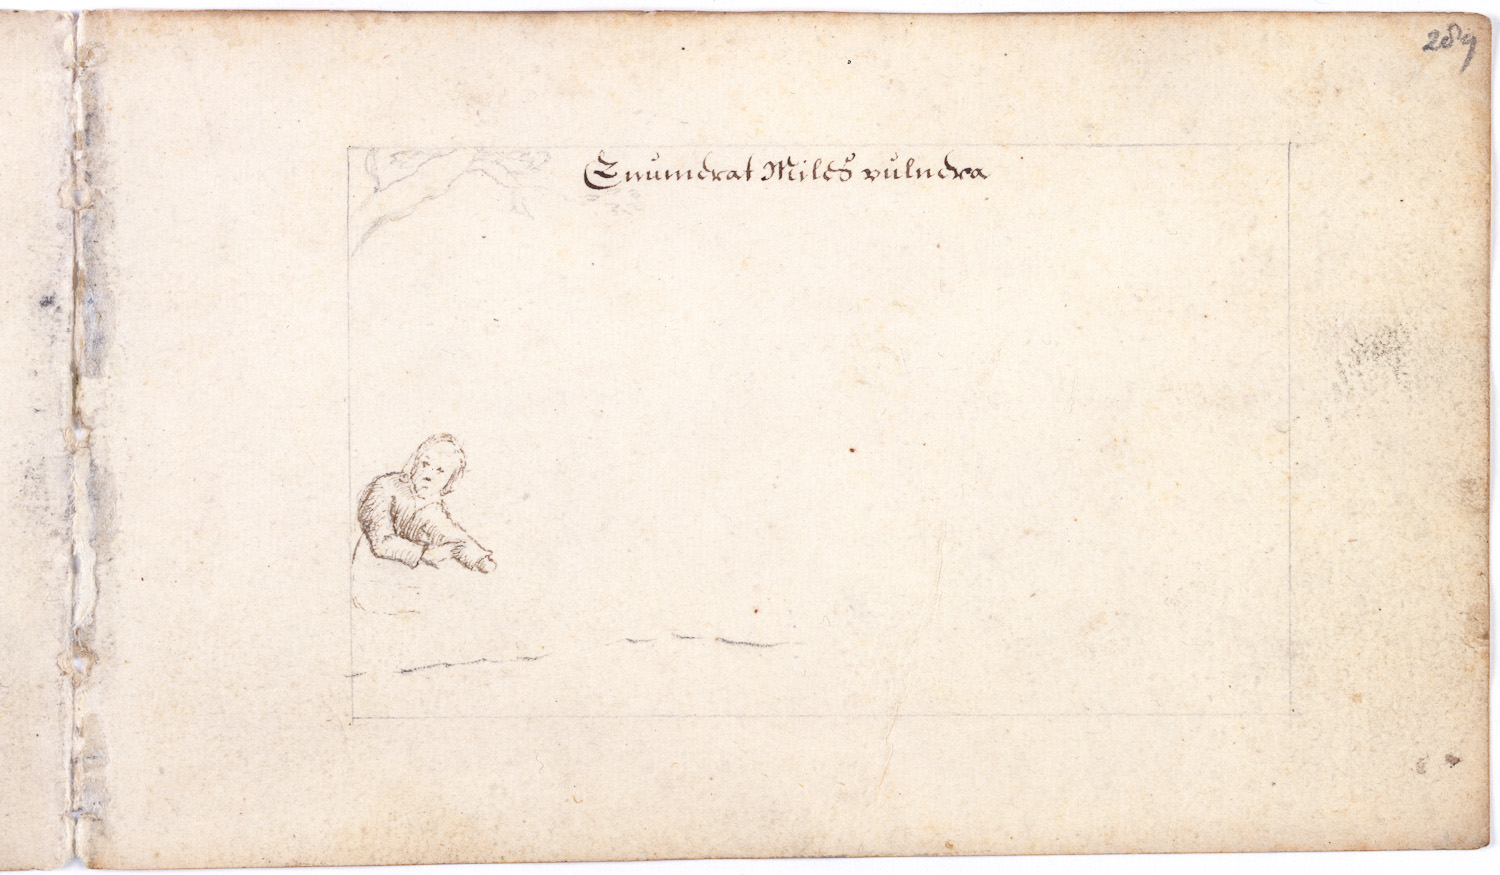 289
Enumerat Miles vulnera